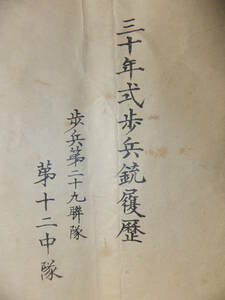 三十年式歩兵銃履歴
歩兵第二十九聯隊
第十二中隊